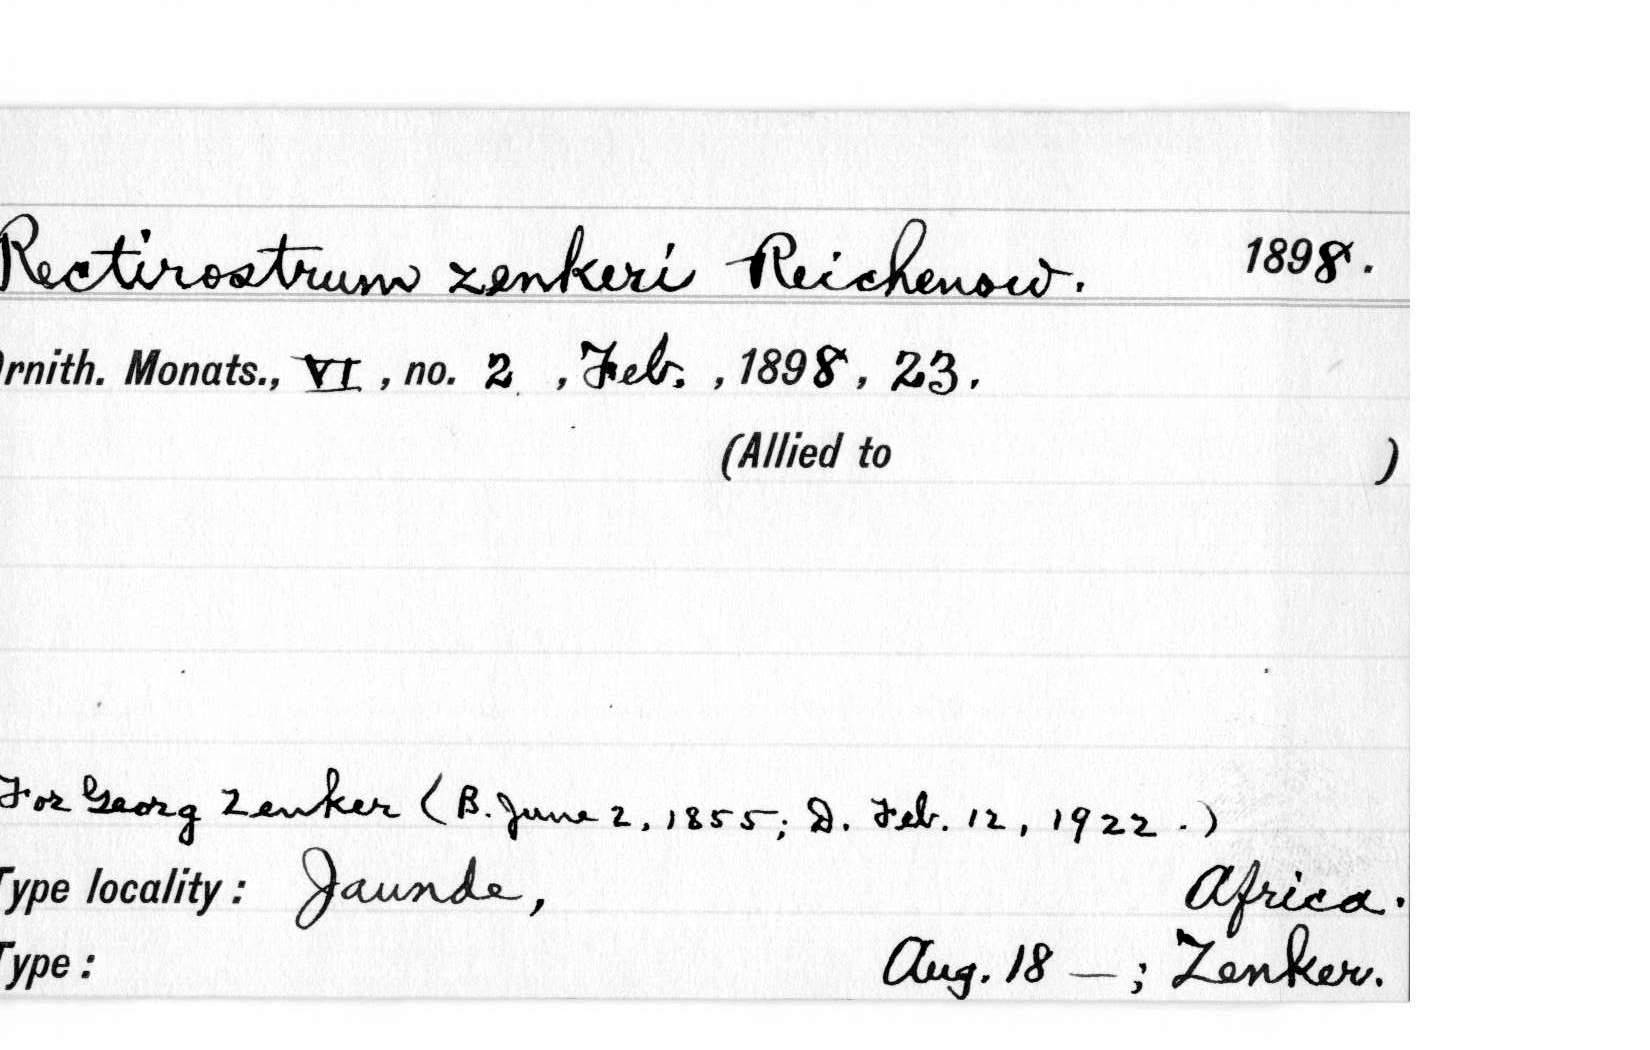 Rectirostrum zenkeri Reichenow. 1898.
Ornith. Monats., VI, no. 2, Feb., 1898, 23.
(Allied to )
For Georg Zenker (B. June 2, 1855; D. Feb. 12, 1922.)
Type locality: Jaunde, Africa.
Type: Aug. 18 —; Zenker.